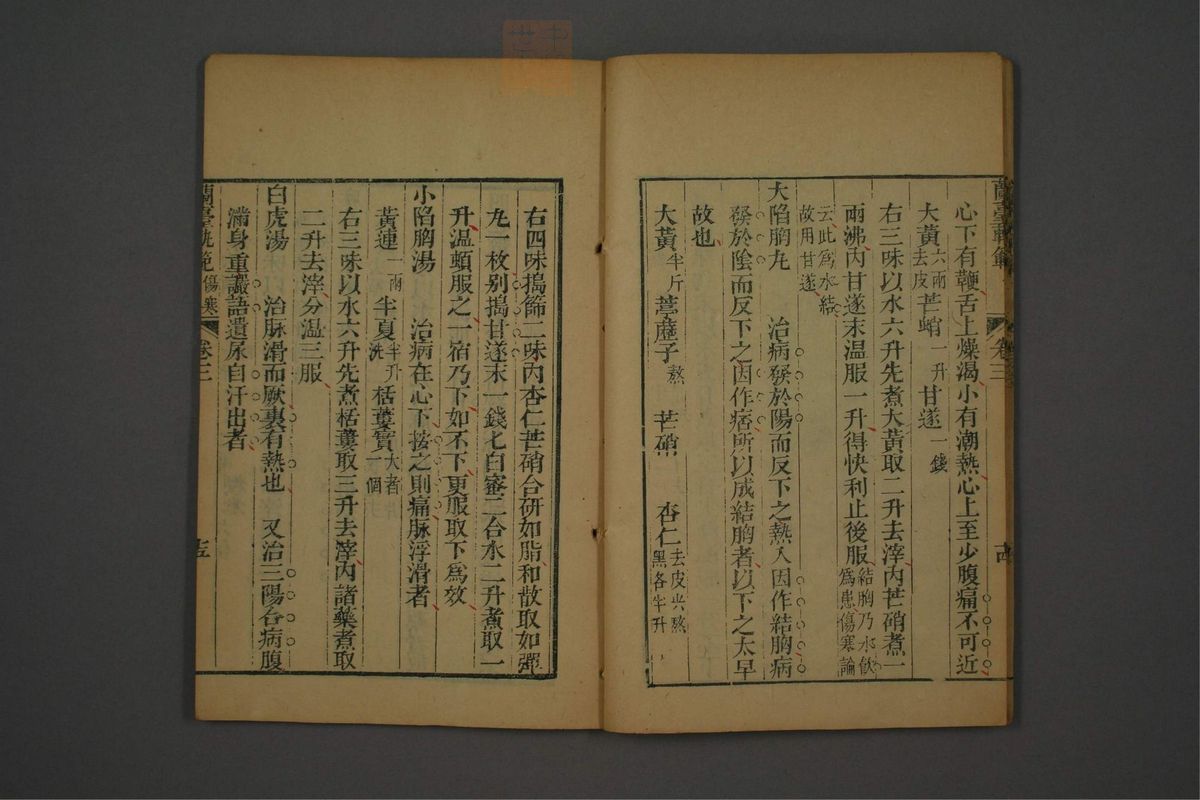 心下有鞭舌上燥渴小有潮熱心上至少腹痛不可近
大黃六兩去皮芒硝一升甘遂一錢
右三味以水六升先煮大黃取二升去滓內芒硝煮一
兩沸內甘遂末温服一升得快利止後服結胸乃水飲爲患傷寒論
云此爲水結故用甘遂
大陷胸丸　治病發於陽而反下之熱入因作結胸病
發於陰而反下之因作痞所以成結胸者以下之太早
故也
大黃半斤葶藶子熬芒硝杏仁去皮尖熬黑各半升
卷三
右四味搗篩二味內杏仁芒硝合研如脂和散取如彈
丸一枚别搗甘遂末一錢匕白蜜二合水二升煮取一
升温頓服之一宿乃下如不下更服取下爲效
小陷胸湯　治病在心下按之則痛脉浮滑者
黃連一兩半夏半升洗栝蔞實大者一個
右三味以水六升先煮栝蔞取三升去滓內諸藥煮取
二升去滓分温三服
白虎湯　治脉滑而厥裏有熱也　又治三陽合病腹
滿身重讝語遺尿自汗出者
蘭臺軌範傷寒　卷三